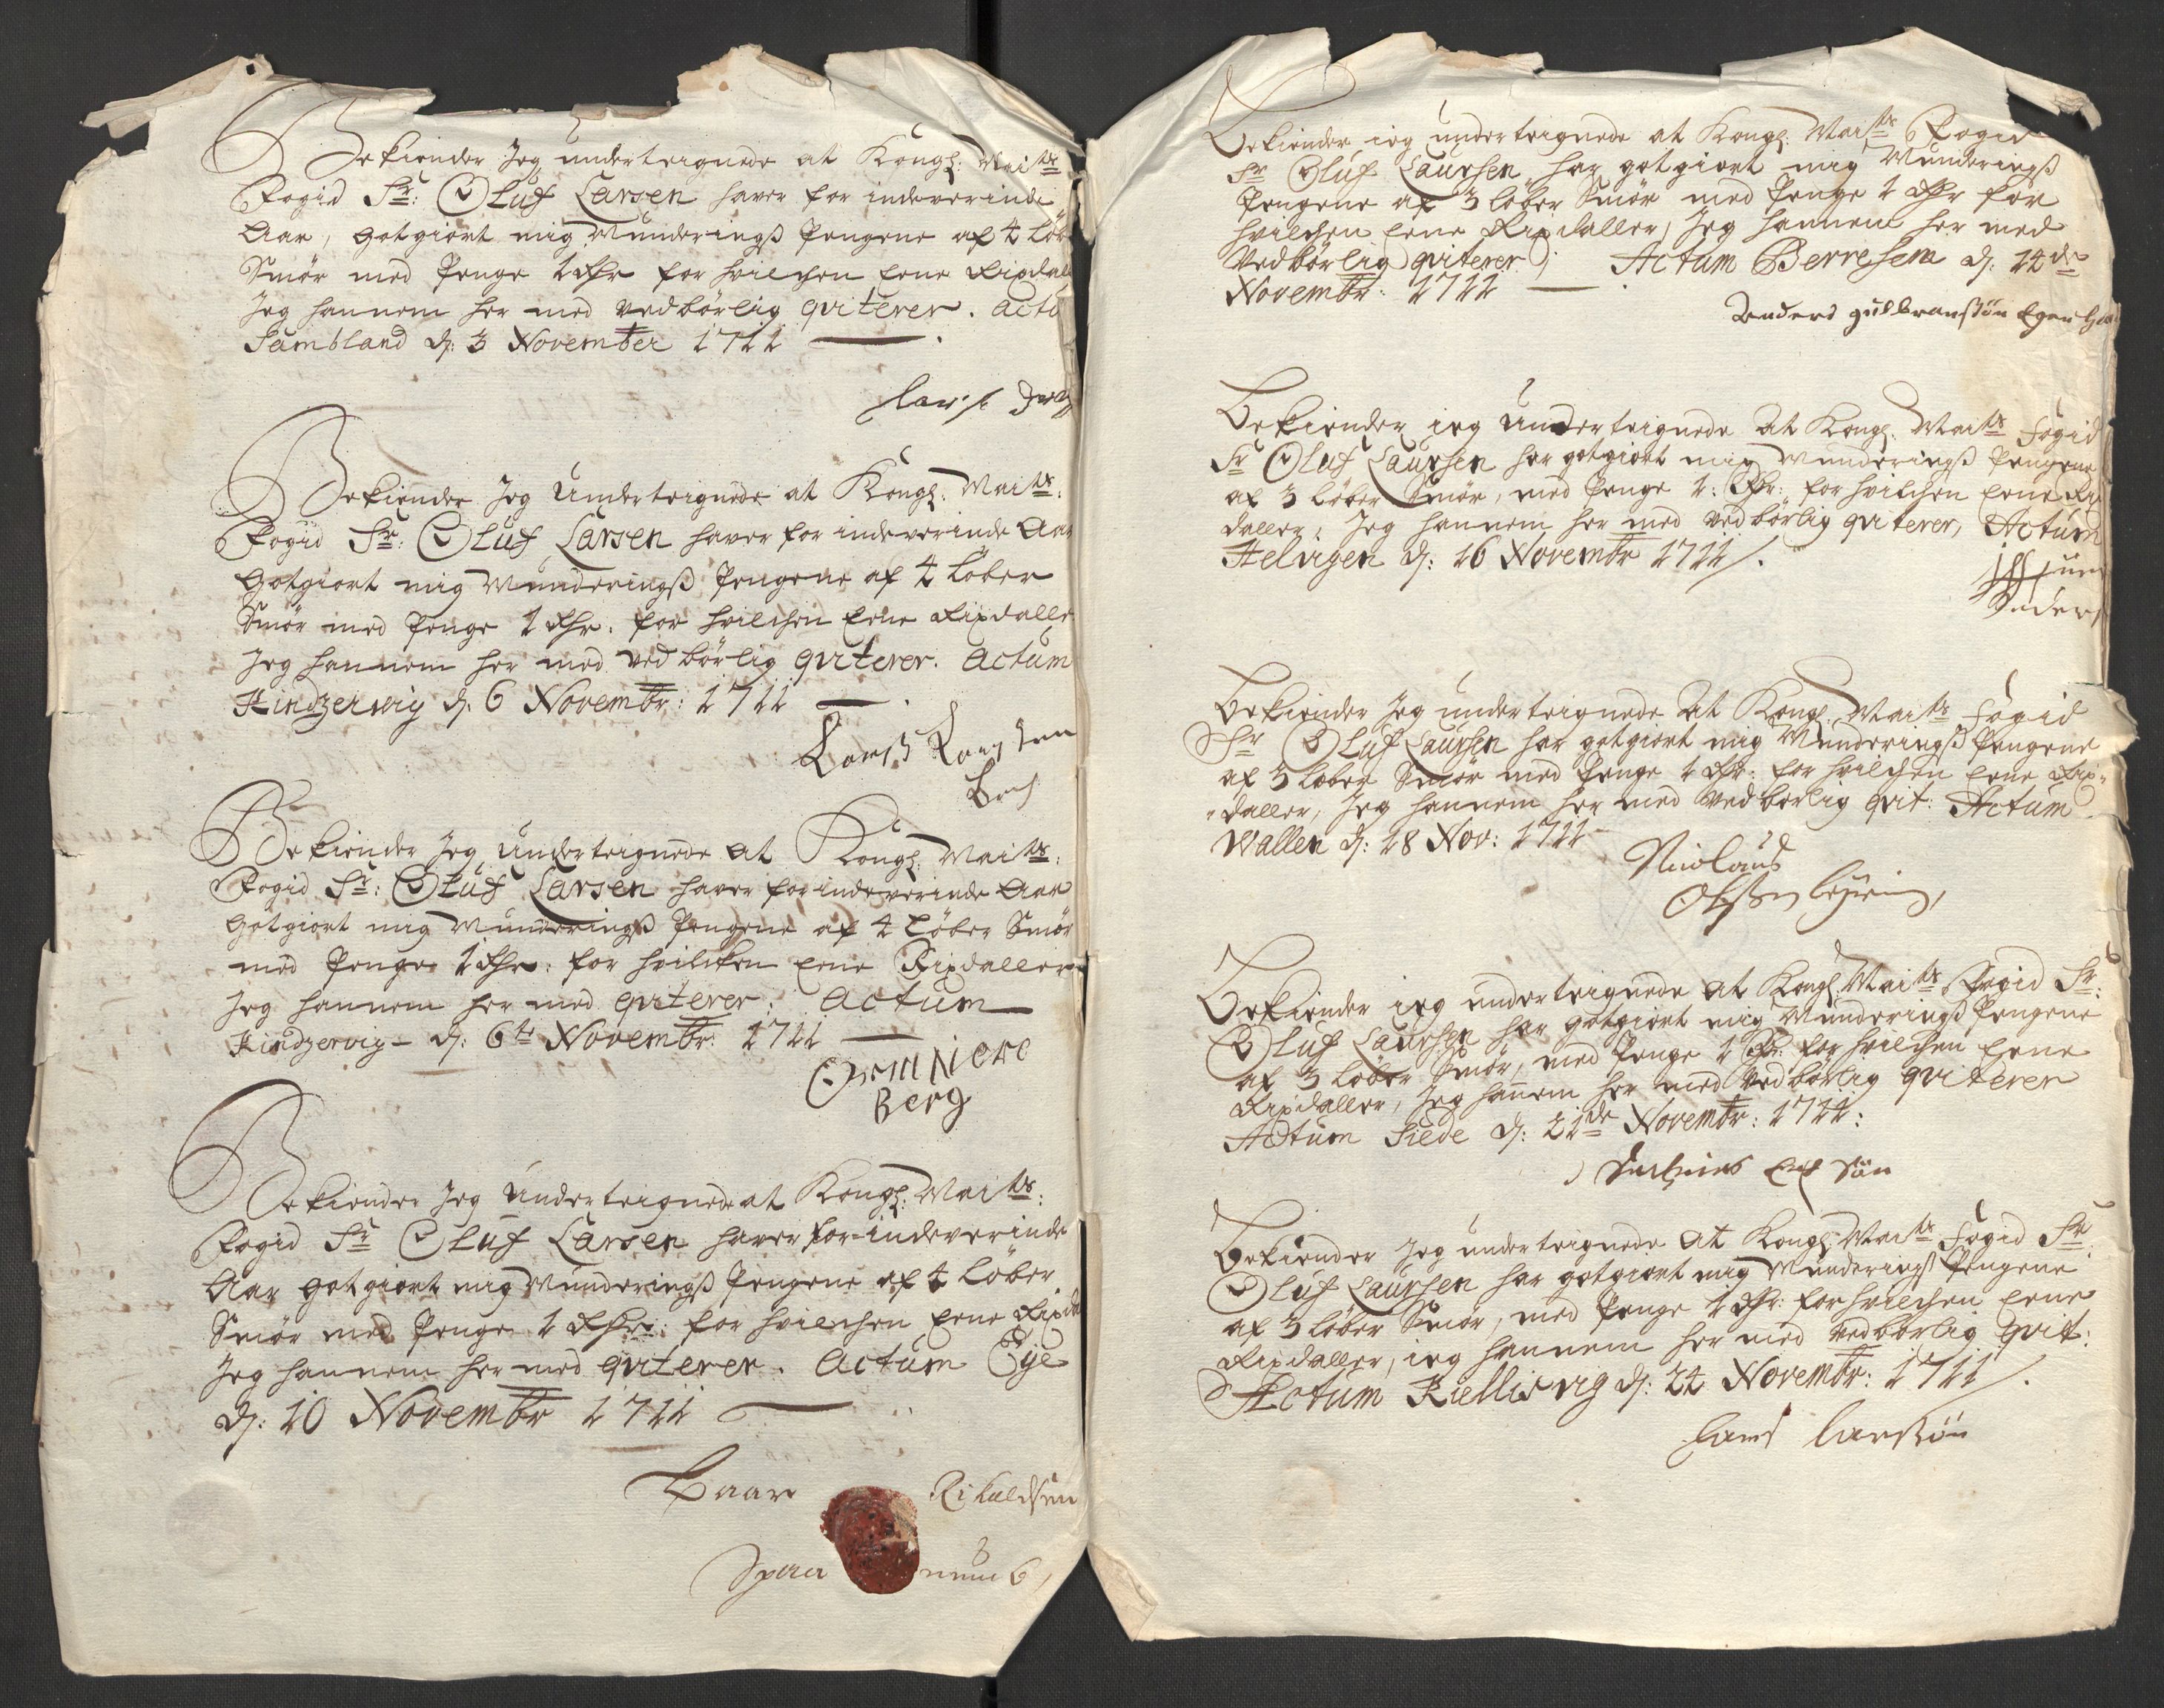 Bekiender Jeg underteignede at Kongl: Maits
Fogid Sr: Oluf Larsen haver for indeverinde
Aar, gotgiort mig Munderingß Pengene af 4 Løb
Smør med Penge 1 Rdr for hvilchen Eene Rixdal
Jeg hannem her med vedbørlig qviterer. Actu
Sambland d: 3 November 1711
Bekiender Jeg Underteignede at Kongl: Maits:
Fogid Sr: Oluf Larsen haver for indeverinde Aar
Gotgiort mig Munderingß Pengene af 4 Løber
Smør med Penge 1 Rdr. for hvilchen Eene Rixdalle
Jeg hannem her med vedbørlig qviterer. Actum
Kindzerwig d: 6 Novembr: 1711
Bekiender Jeg Underteignede at Kongl: Maits:
Fogid Sr: Oluf Larsen haver for indeverinde Aar
Gotgiort mig Munderingß Pengene af 4 Løber Smør
med Penge 1 Rdr: for hvilcken Eene Rixdaller
Jeg hannem her med qviterer. Actum
Kindzervig d: 6te Novembr: 1711
Berg
Bekiender Jeg Underteignede at Kongl: Maits:
Fogid Sr Oluf Larsen haver for-indeverinde
Aar gotgiort mig Munderingß Pengene af 4 Løber
Smør med Penge 1 Rdr: for hvilchen Eene Rixda
Jeg hannem her med qviterer. Actum Eye
d: 10 Novembr 1711
Baar
Bekiender ieg underteignede at Kongl: Maits Fogid
Sr Oluf Laursen, har gotgiort mig Munderingß
Pengene af 3 løber Smør med Penge 1 Rdr for
hvilchen Eene Rixdaller, Jeg hannem her med
Vedbørlig qviterer, Actum Berresem d: 14de
Novembr: 1711
Anders gulbransøn Egen Haand
Bekiender ieg Underteignede At Kongl: Maits Fogid
Sr Oluf Laursen har gotgiort mig Munderingß Pengene
af 3 Løber Smør, med Penge 1: Rdr: for hvilchen Eene Ri
daller, Jeg hannem her med vedbørlig qviterer, Actum
Helvigen d: 16 Novembr 1711/.
Bekiender Jeg underteignede At Kongl: Maits Fogid
Sr Oluf Laursen har gotgiort mig Munderingß Pengene
af 3 Løber Smør med Penge 1 Rdr: for hvilchen Eene Rix-
-daller, Jeg hannem her med vedbørlig qvit: Actum
Wallen d: 18 Nov: 1711
Nicolaus
Bekiender ieg underteignede At Kongl: Maits Fogid Sr:
Oluf Laursen har gotgiort mig Munderingß Pengene
af 3 Løber Smør, med Penge 1 Rdr: for hvilchen Eene
Rixdaller, Jeg hannem her med vedbørlig qviterer
Actum Siede d: 21de Novembr: 1711:
Bekiender Jeg underteignede At Kongl: Maits Fogid Sr
Oluf Laursen har gotgiort mig Munderingß Pengene
af 3 løber Smør, med Penge 1 Rdr: for hvilchen Eene
Rixdaller, ieg hannem her med vedbørlig qvit:
Actum Kiellisvig d: 24 Novembr: 1711/.
Larß Larsøn